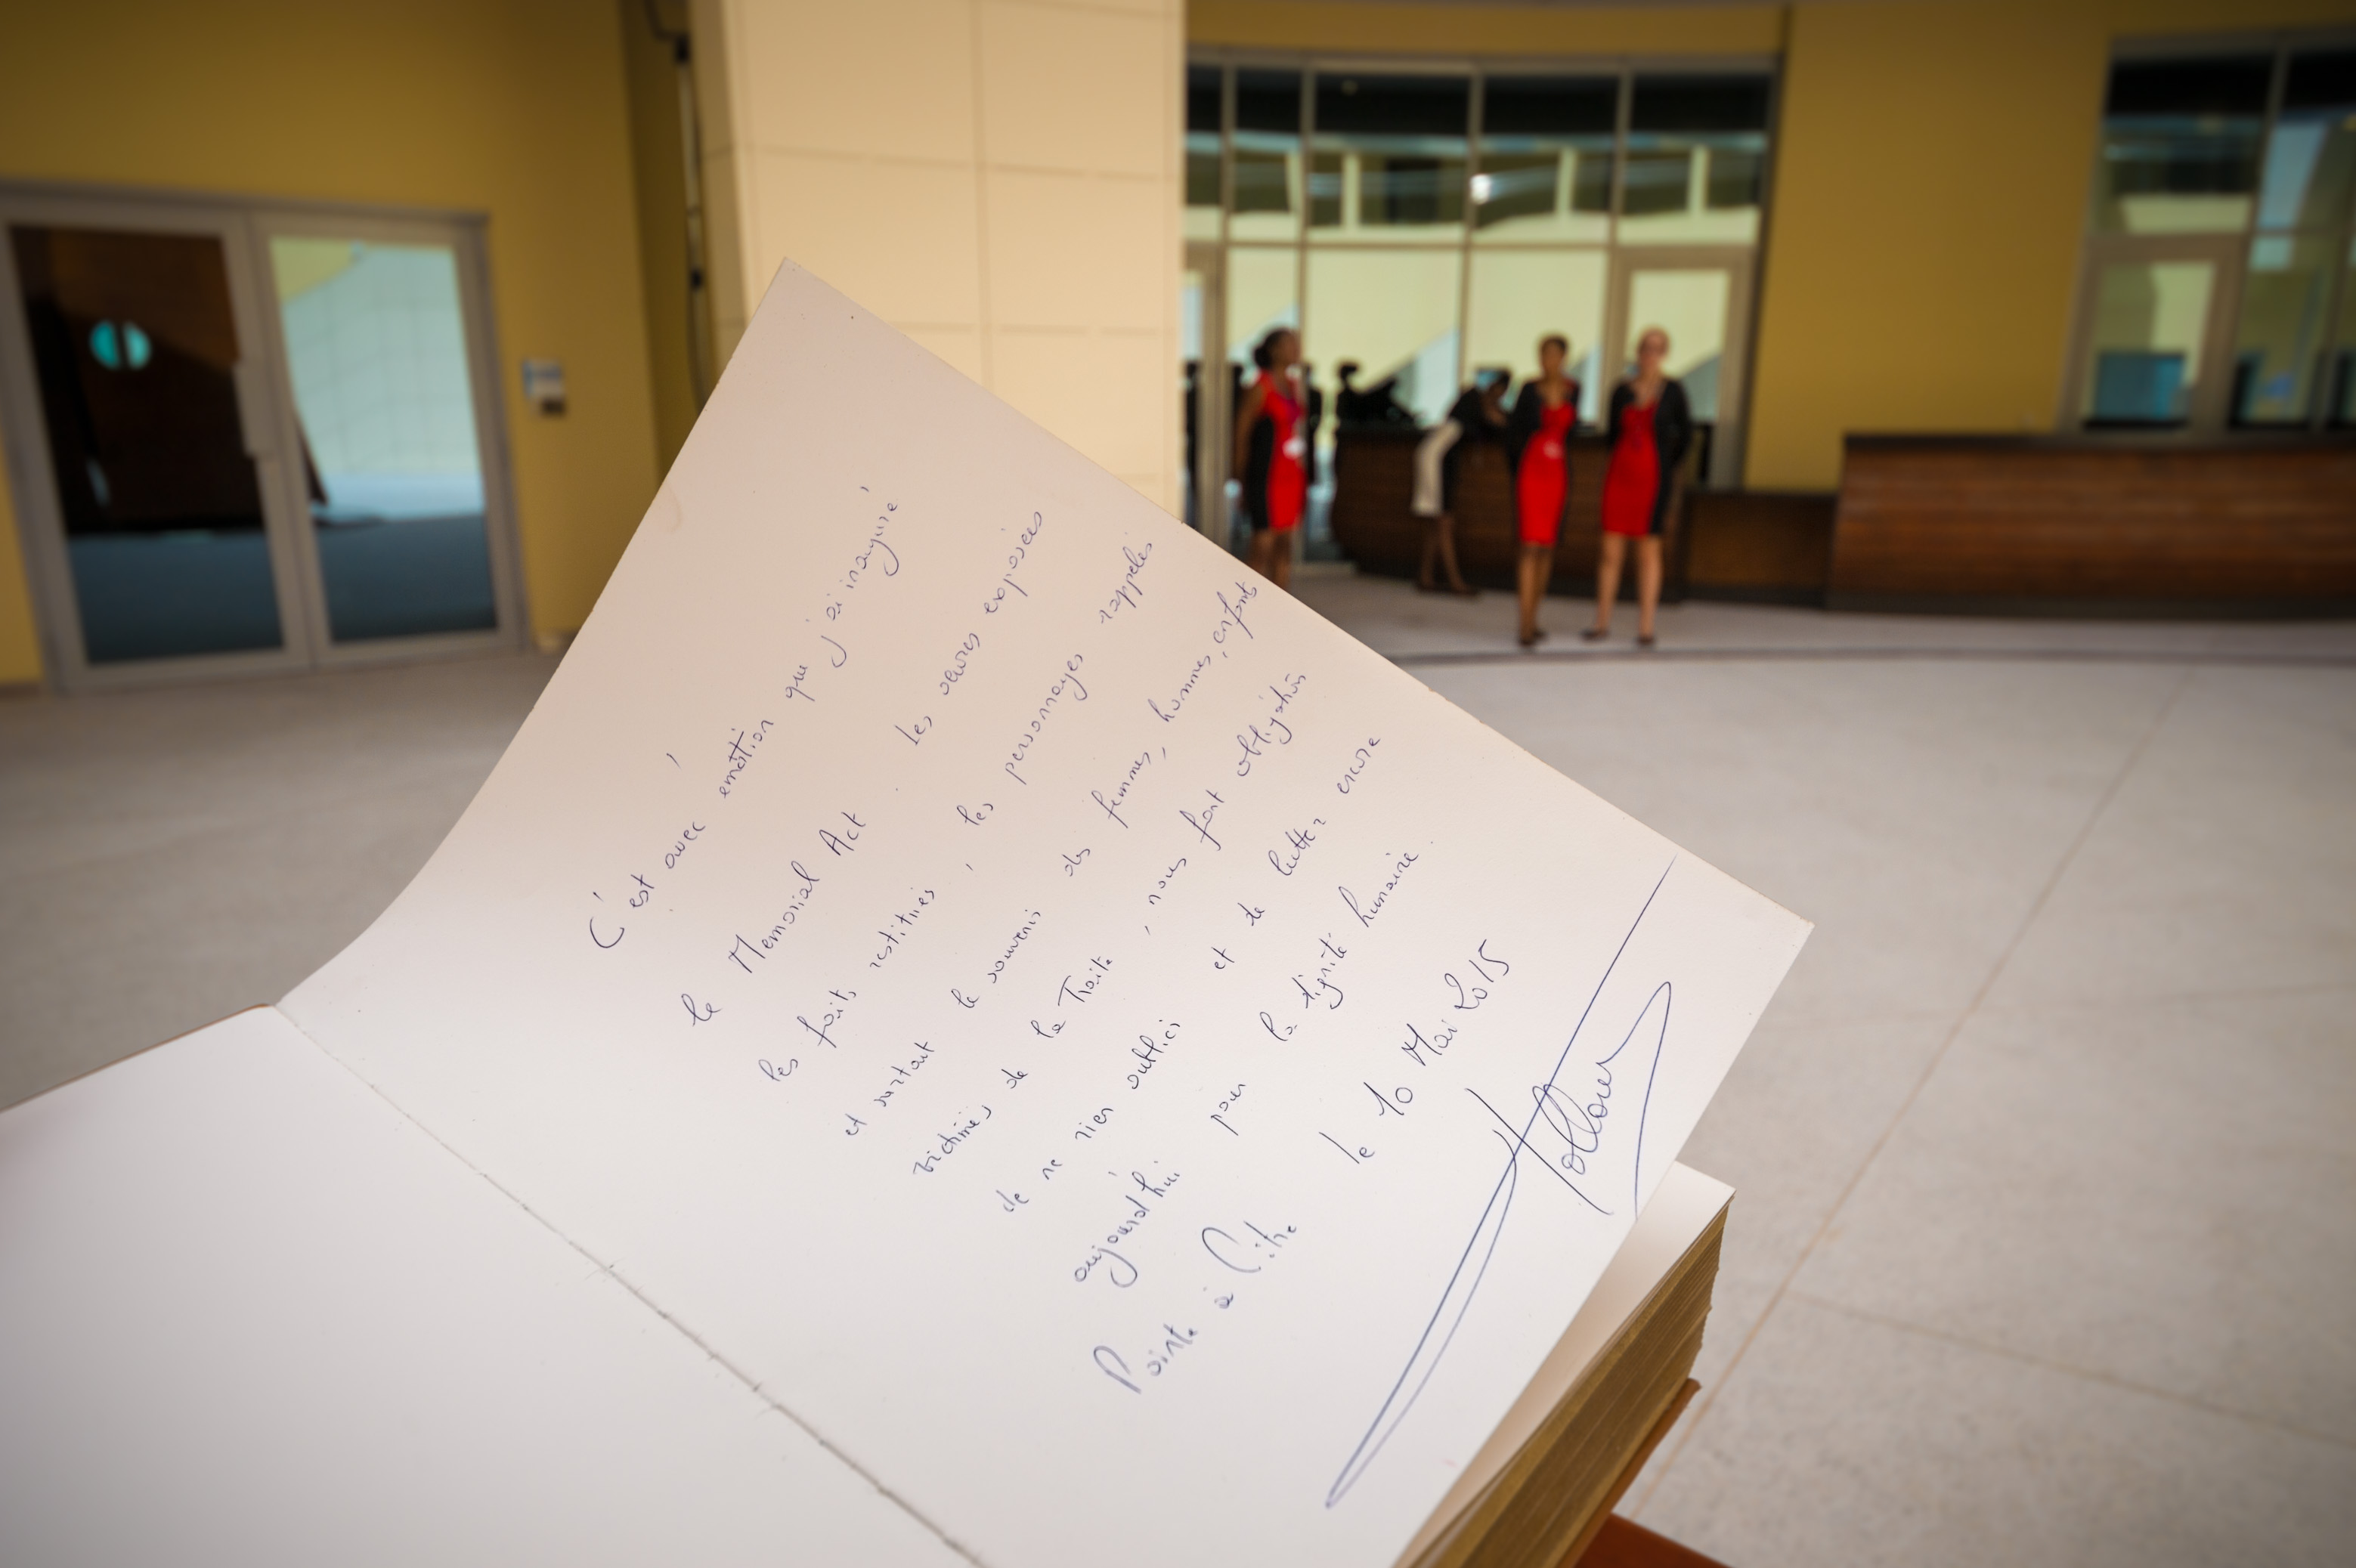 C'est avec émotion que j'ai inauguré
le Memorial Act. Les œuvres exposées
les faits restitués, les personnages rappelés
et surtout le souvenir des femmes, hommes, enfants
victimes de la Traite, nous font obligation
de ne rien oublier et de lutter encore
aujourd'hui pour la dignité humaine.
Pointe à Pitre le 10 Mai 2015
Hollande